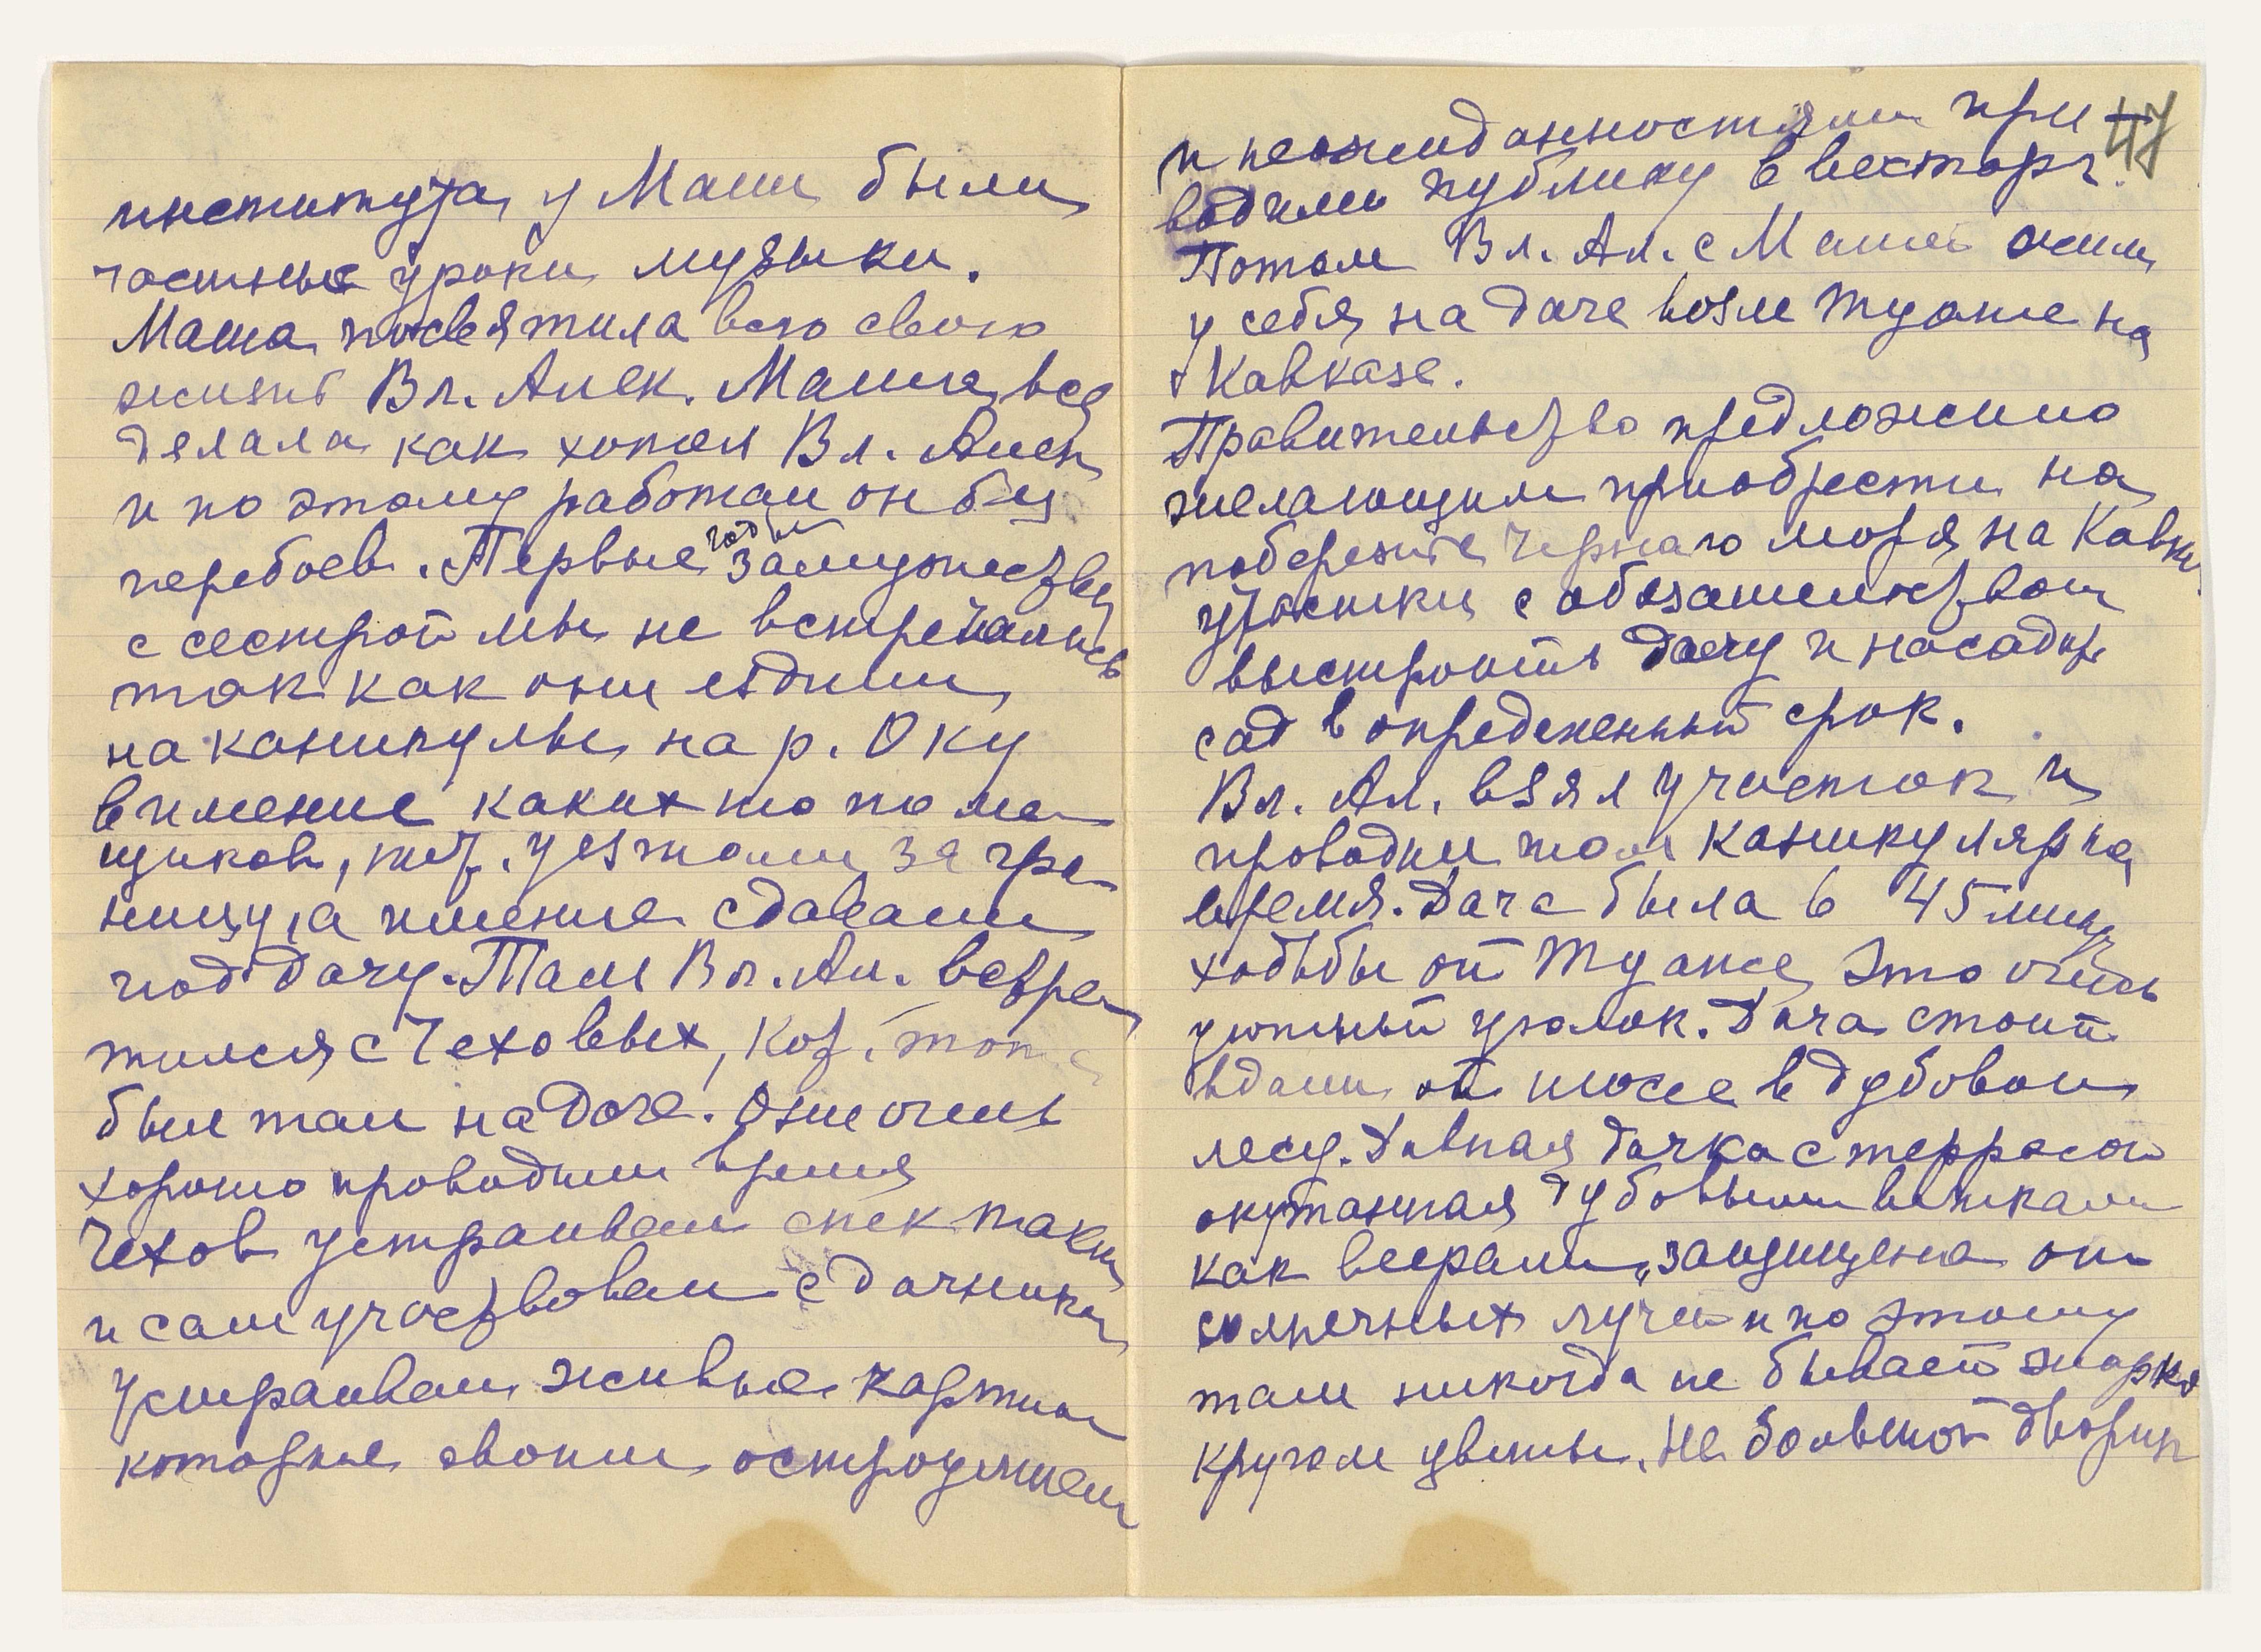 института, у Маши были
частные уроки музыки.
Маша посвятила всю свою
жизнь Вл. Алек. Маша все
делала как хотел Вл. Алек
и по этому работал он без
перебоев. Первые годы замужества
с сестрой мы не встречались
так как они ездили
на каникулы на р. Оку
в имение каких то поме
щиков, кот. уезжали за гра
ницу, а имение сдавали
под дачу. Там Вл. Ал. встре
тился с Чеховых, кот. тоже
был там на даче. Они очень
хорошо проводили время
Чехов устраивал спектакли
и сам участвовал с дачниками
Устраивал живые картины
которые своими остроумием
47
и неожиданностями при
водили публику в восторг.
Потом Вл. Ал. с Машей жили
у себя на даче возле Туапсе на
Кавказе.
Правительство предложило
желающим приобрести на
побережье Чернаго моря на Кавк.
участки с обязательством
выстроить дачу и насадить
сад в определенный срок.
Вл. Ал. взял участок и
проводил там каникулярное
время. Дача была в 45 мин
ходьбы от Туапсе, это очень
уютный уголок. Дача стоит
вдали от шоссе в дубовом
лесу. Дивная дачка с террасой
окутанная дубовыми ветками
как веерами, защищена от
солнечных лучей и по этому
там никогда не бывает жарко
кругом цветы. Не большой дворик